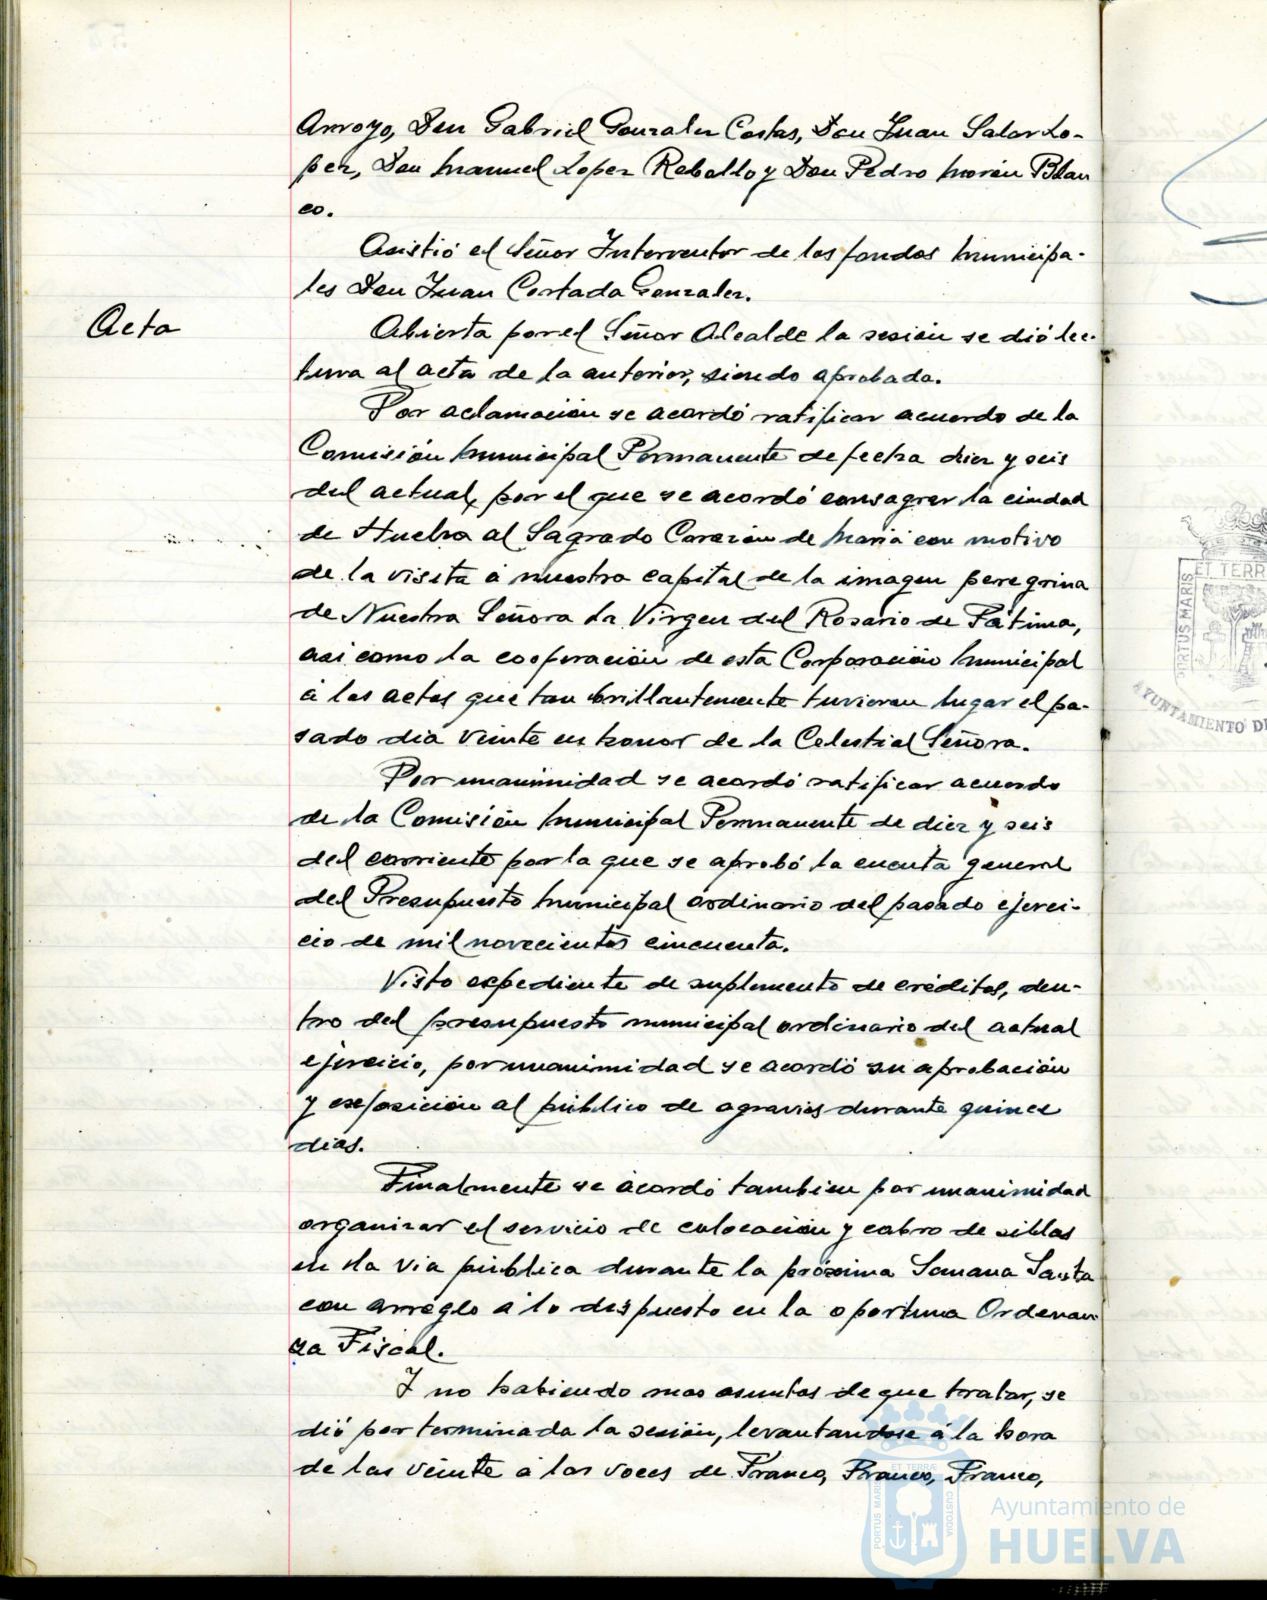 Arroyo, Don Gabriel Gonzalez Costas, Don Juan Salas Lo-
pez, Don Manuel Lopez Rebollo y Don Pedro Morón Blan
co.
Asistió el Señor Interventor de los fondos Municipa-
les Don Juan Cortada Gonzalez.
Acta
Abierta por el Señor Alcalde la sesión se dió lec-
tura al acta de la anterior, siendo aprobada.
Por aclamación se acordó ratificar acuerdo de la
Comisión Municipal Permanente de fecha diez y seis
del actual, por el que se acordó consagrar la ciudad
de Huelva al Sagrado Corazón de María con motivo
de la visita á nuestra capital de la imagen peregrina
de Nuestra Señora la Virgen del Rosario de Fátima,
asi como la cooperación de esta Corporación Municipal
á los actos que tan brillantemente tuvieron lugar el pa-
sado dia veinte en honor de la Celestial Señora.
Por unanimidad se acordó ratificar acuerdo
de la Comisión Municipal Permanente de diez y seis
del corriente por la que se aprobó la cuenta general
del Presupuesto Municipal ordinario del pasado ejerci-
cio de mil novecientos cincuenta.
Visto expediente de suplemento de créditos, den-
tro del presupuesto municipal ordinario del actual
ejercicio, por unanimidad se acordó su aprobación
y exposición al público de agravios durante quince
dias.
Finalmente se acordó tambien por unanimidad
organizar el servicio de colocación y cobro de sillas
en la via pública durante la próxima Semana Santa
con arreglo á lo dispuesto en la oportuna Ordenan
za Fiscal.
Y no habiendo mas asuntos de que tratar, se
dió por terminada la sesión, levantandose á la hora
de las veinte á las voces de Franco, Franco, Franco,
ET TERR
PORTUS MARIS
AYUNTAMIENTO DE
ET TERRÆ
PORTUS MARIS
CUSTODIA
Ayuntamiento de
HUELVA